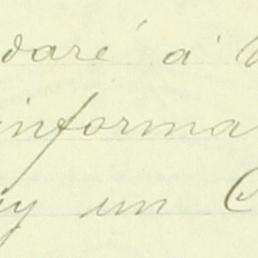 daré á
informa
y un C